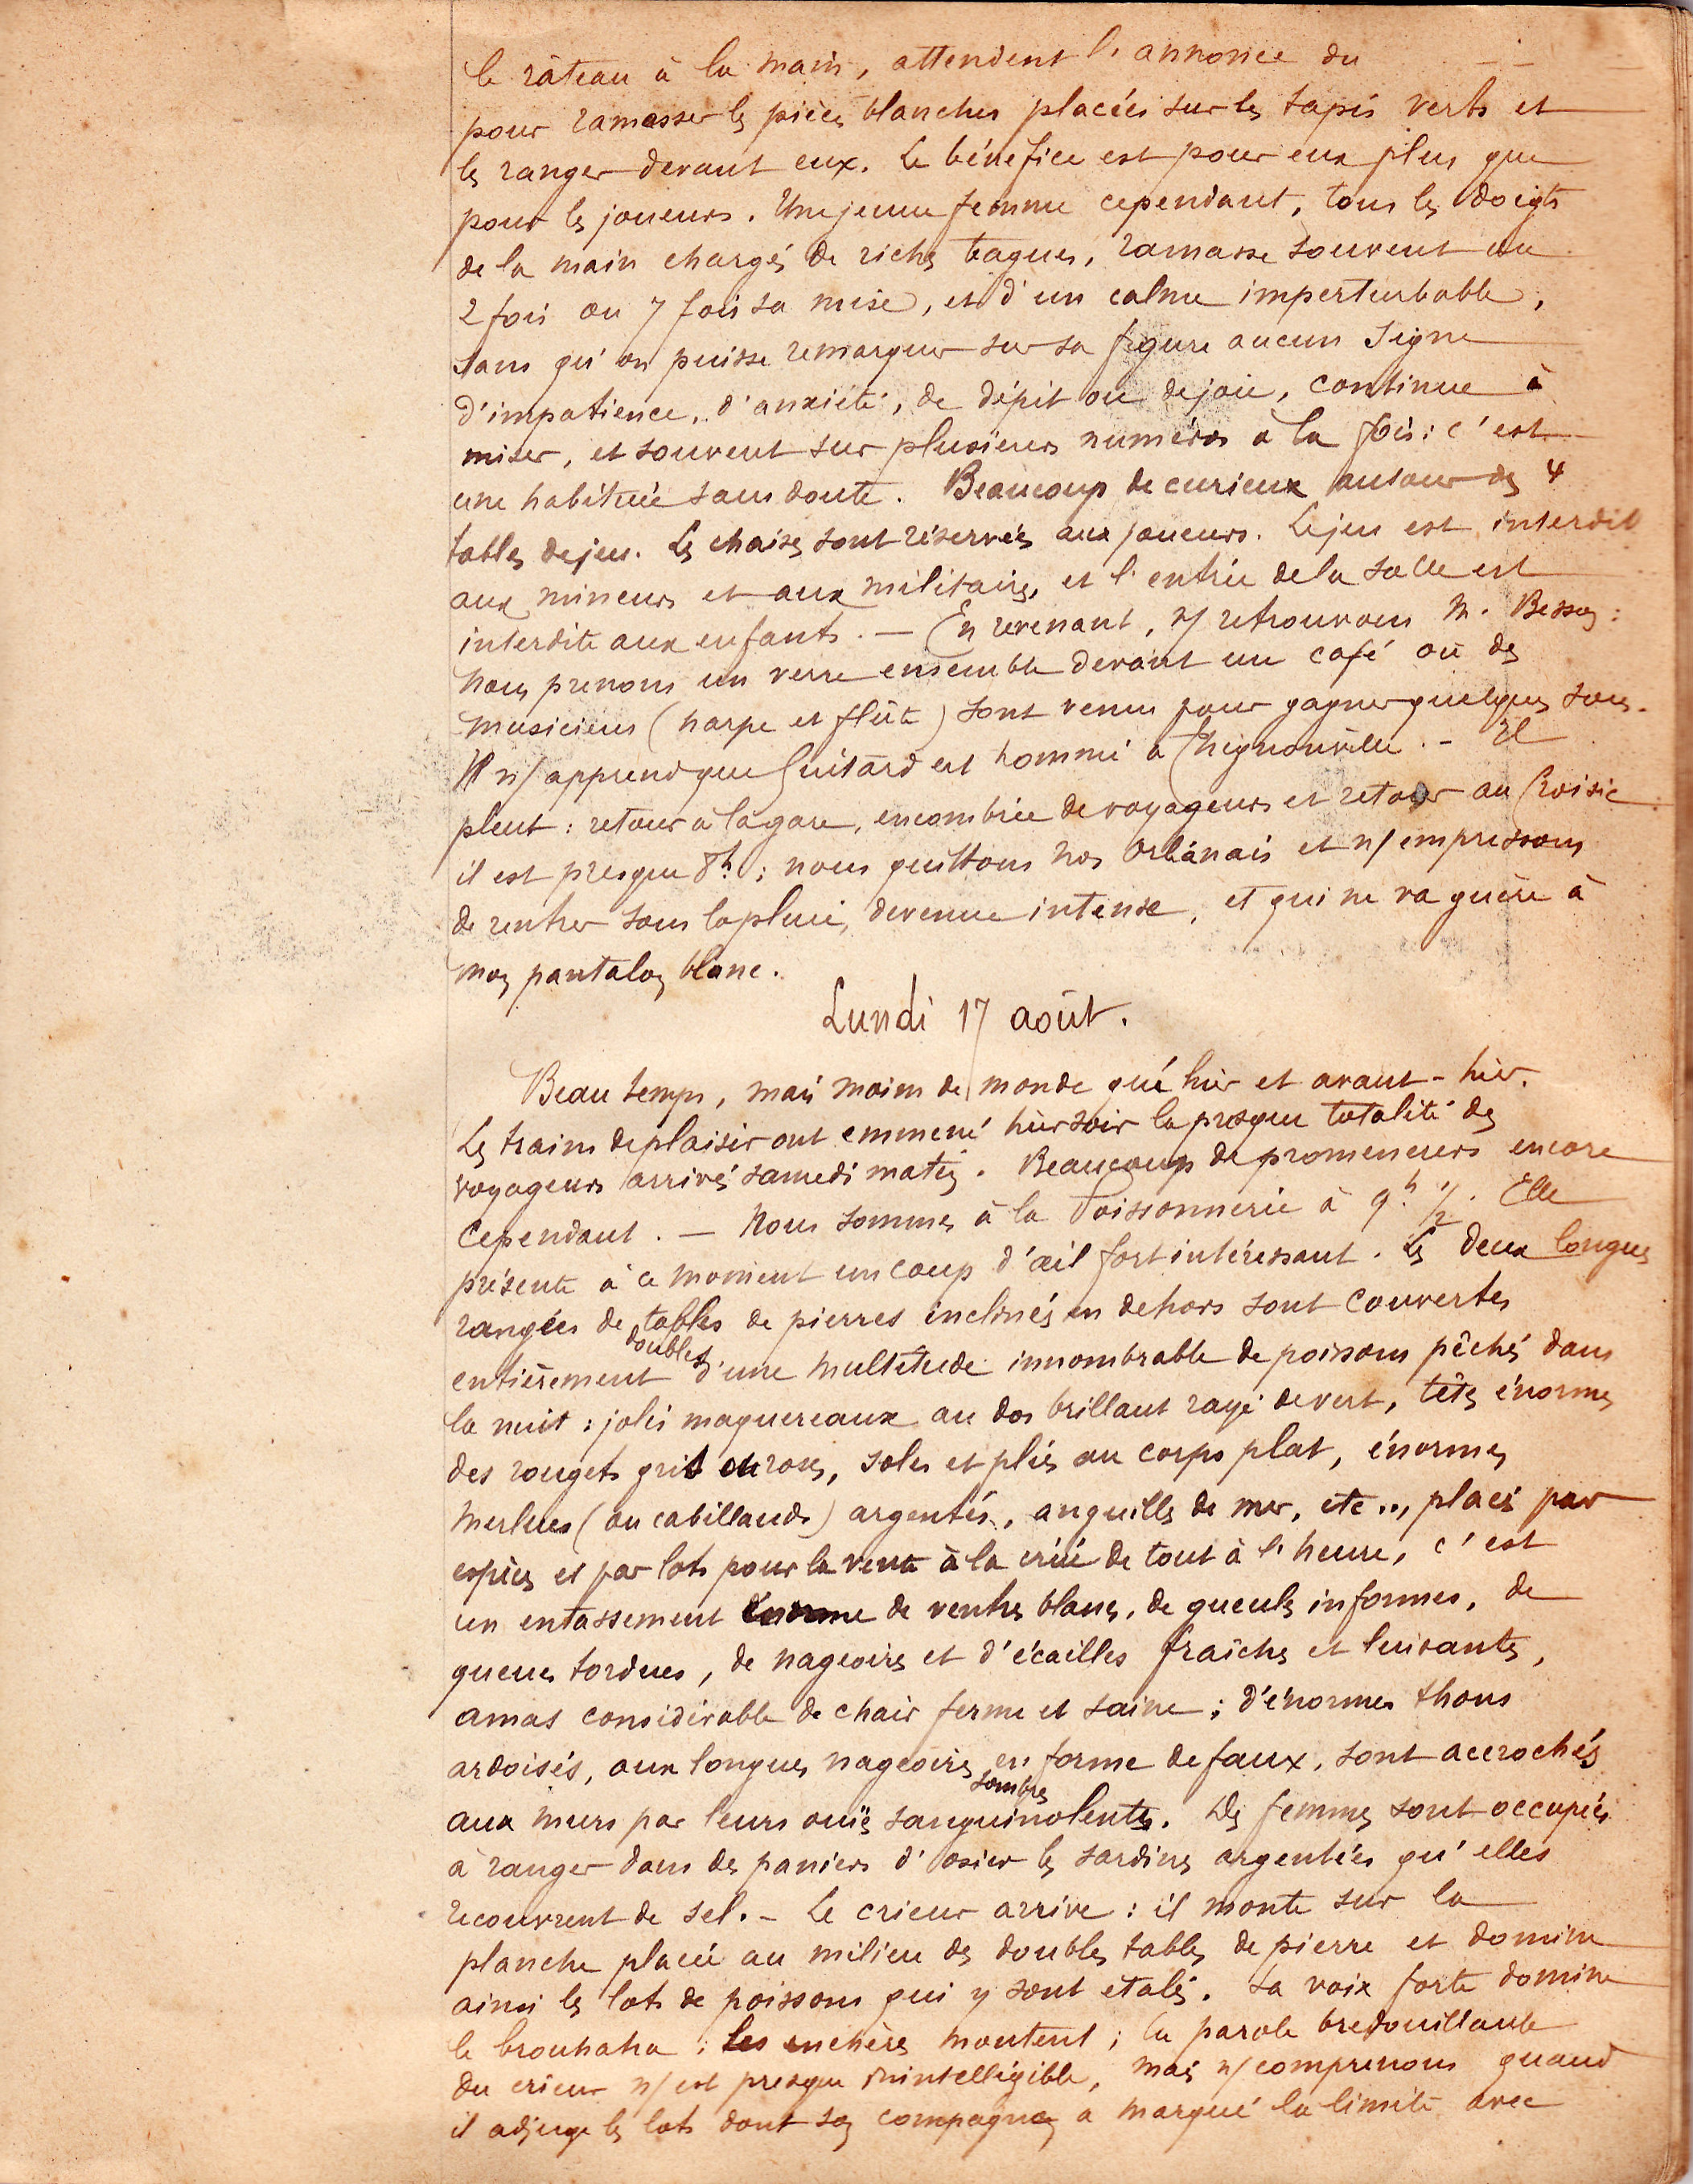 le râteau à la main, attendent l'annonce du
pour ramasser les pièces blanches placées sur les tapis verts et
les ranger devant eux. Le bénéfice est pour eux plus que
pour les joueurs. Une jeune femme cependant, tous les doigts
de la main chargés de riches bagues, ramasse souvent ou
2 fois ou 7 fois sa mise, et d'un calme imperturbable,
sans qu'on puisse remarquer sur sa figure aucun signe
d'impatience, d'anxiété, de dépit ou de joie, continue à
miser, et souvent sur plusieurs numéros à la fois : c'est
une habituée sans doute. Beaucoup de curieux autour des 4
tables de jeu. Les chaises sont réservées aux joueurs. Le jeu est interdit
aux mineurs et aux militaires, et l'entrée de la salle est
interdite aux enfants. — En revenant, n/ retrouvons M. Besson :
nous prenons un verre ensemble devant un café où des
musiciens (harpe et flûte) sont venus pour gagner quelques sous.
Il n/ apprend que Guitard est nommé à Chignonville. - Il
pleut : retour à la gare, encombrée de voyageurs et retour au Croisic
il est presque 8h. ; nous quittons nos Orléanais et n/ empressons
de rentrer sous la pluie, devenue intense, et qui ne va guère à
mon pantalon blanc.
Lundi 17 août.
Beau temps, mais moins de monde qu'hier et avant-hier.
Les trains de plaisir ont emmené hier soir la presque totalité des
voyageurs arrivés samedi matin. Beaucoup de promeneurs encore
cependant. — Nous sommes à la Poissonnerie à 9h. 1/2. Elle
présente à ce moment un coup d'œil fort intéressant. Les deux longues
rangées de tables de pierres inclinées en dehors sont couvertes
doubles
entièrement d'une multitude innombrable de poissons pêchés dans
la nuit : jolis maquereaux au dos brillant rayé de vert, têtes énormes
des rougets gris et roses, soles et plies au corps plat, énormes
merlues (ou cabillauds) argentés, anguilles de mer, etc.., placés par
espèces et par lots pour la vente à la criée de tout à l'heure, c'est
un entassement énorme de ventres blancs, de gueules informes, de
queues tordues, de nageoires et d'écailles fraîches et luisantes,
amas considérable de chair ferme et saine ; d'énormes thons
ardoisés, aux longues nageoires en forme de faux, sont accrochés
sombres
aux murs par leurs ouïes sanguinolentes. Des femmes sont occupées
à ranger dans des paniers d'osier les sardines argentées qu'elles
recouvrent de sel. - Le crieur arrive : il monte sur la
planche placée au milieu des doubles tables de pierre et domine
ainsi les lots de poissons qui y sont etalés. Sa voix forte domine
le brouhaha ; les enchères montent ; la parole bredouillante
du crieur n/ est presque inintelligible, mais n/ comprenons quand
il adjuge les lots dont son compagnon a marqué la limite avec